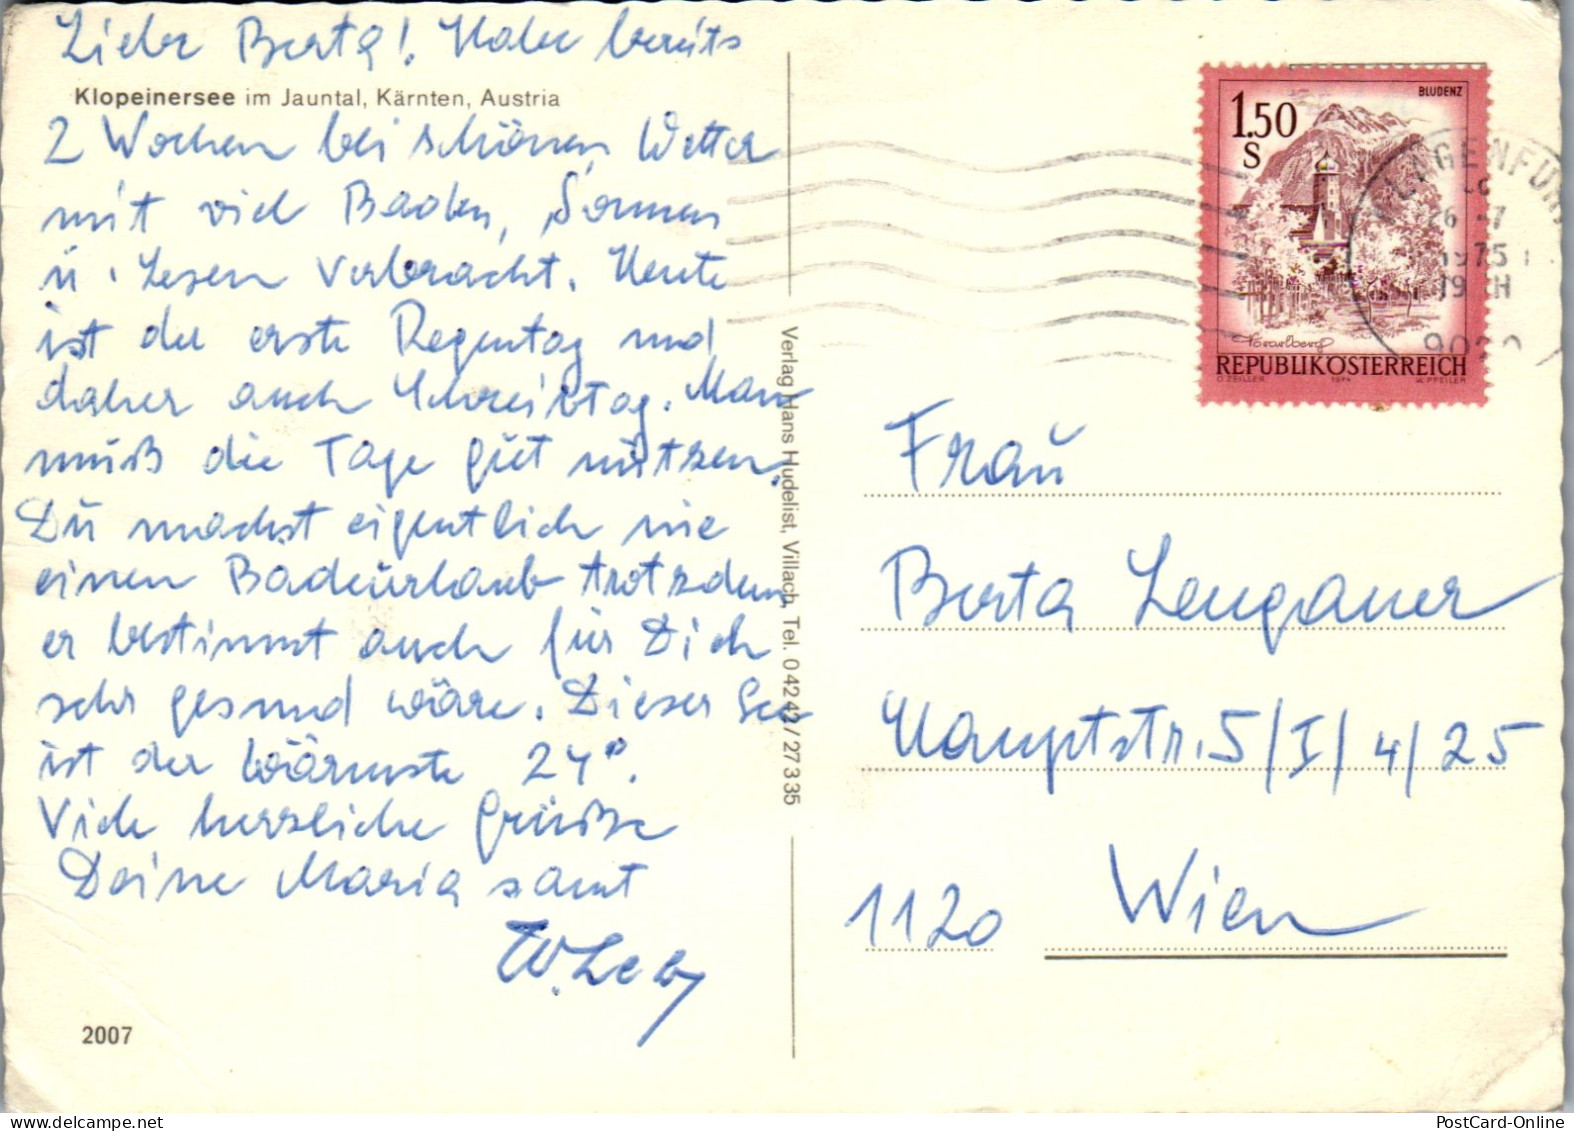 Liebe Berta! Habe bereits
Klopeinersee im Jauntal, Kärnten, Austria
2 Wochen bei schönen Wetter
mit viel Baden, Sonnen
u. Lesen verbracht. Heute
ist der erste Regentag und
daher auch Schreibtag. Man
muß die Tage gut nützen.
Du machst eigentlich nie
einen Badeurlaub trotzdem
er bestimmt auch für Dich
sehr gesund wäre. Dieser See
ist der wärmste 24°.
Viele herzliche Grüße
Deine Maria samt
2007
Verlag Hans Hudelist, Villach, Tel. 0 42 42 / 27 3 35
BLUDENZ
1.50
S
Vorarlberg
REPUBLIK ÖSTERREICH
O. ZEILLER 1974 W. PFEILER
KLAGENFURT
26 -7
1975
19 H
Frau
Berta Lengauer
Hauptstr. 5/I/4/25
1120 Wien
PostCard-Online